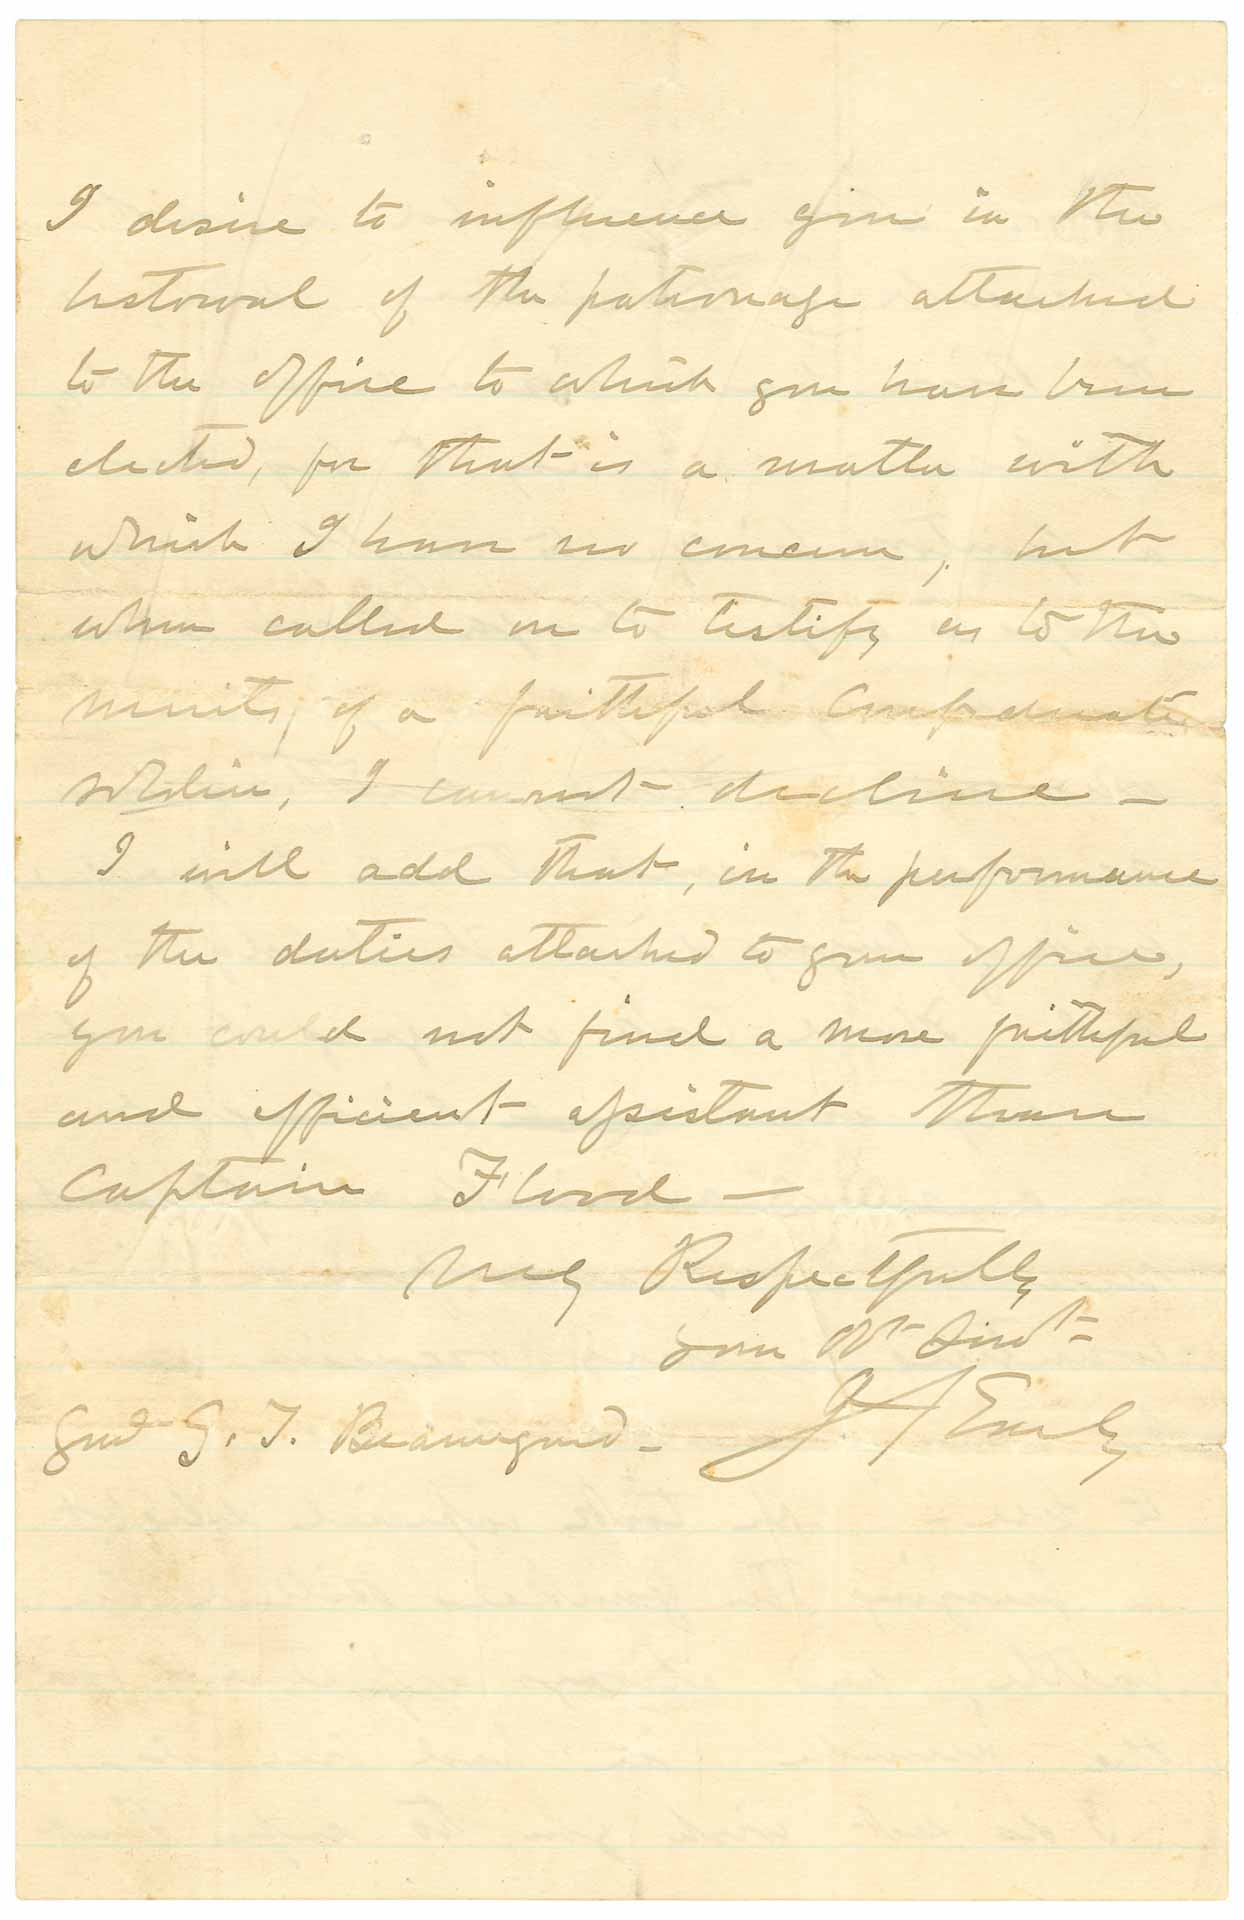 I desire to influence you in the
bestowal of the patronage attached
to the office to which you have been
elected, for that is a matter with
which I have no concern, but
when called on to testify as to the
merits, of a faithful Confederate
soldier, I cannot decline –
I will add that, in the performance
of the duties attached to your office,
you could not find a more faithful
and efficient assistant than
Captain Flood –
Very Respectfully
your Obt Servt
J A Early
Genl G. T. Beauregard –